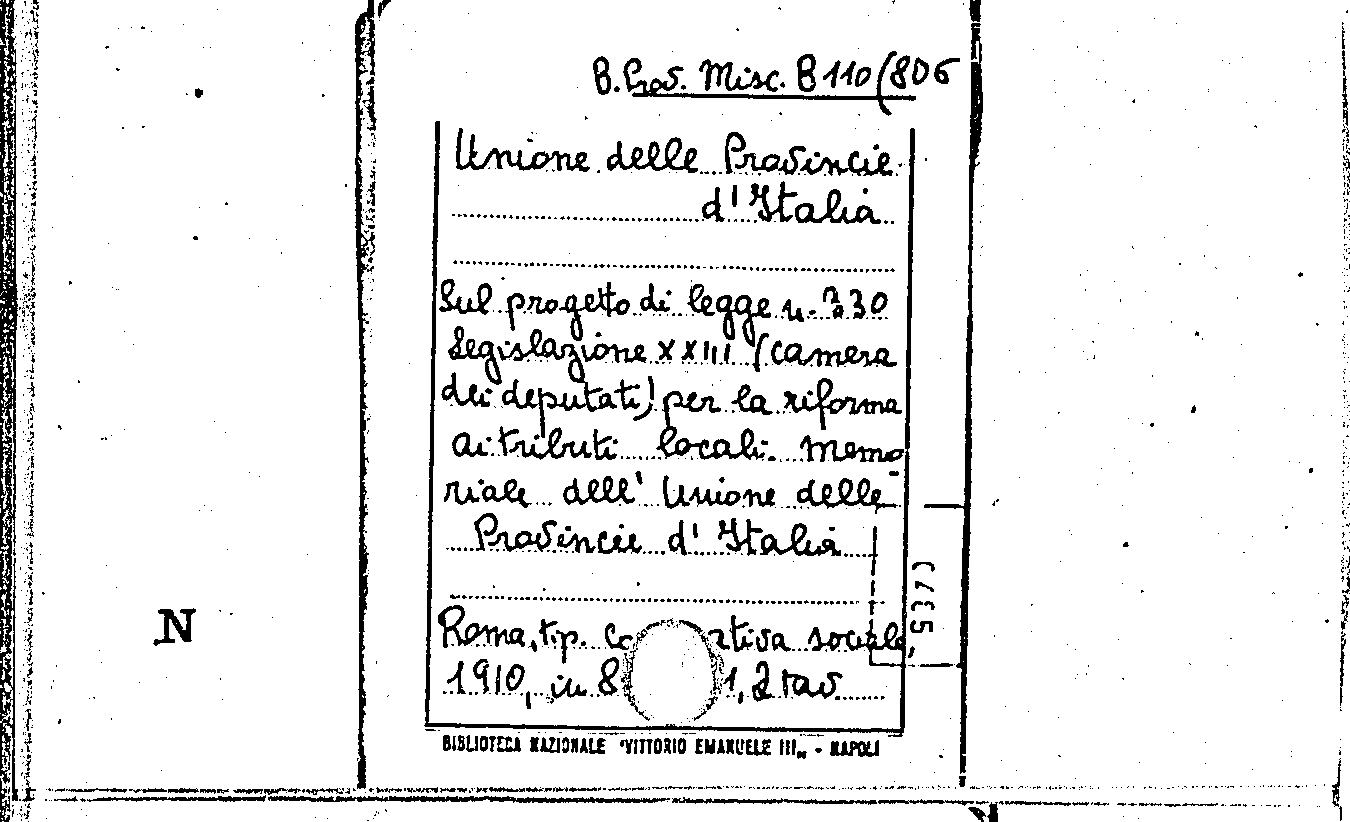 B. Prov. Misc. B 110(806
Unione delle Provincie
d'Italia
Sul progetto di legge n. 330
Legislazione XXIII (camera
dei deputati) per la riforma
ai tributi locali. Memo
riale dell' Unione delle
Provincie d'Italia
Roma, tip. Co rativa sociale,
1910, in 8 1, 2 tav
BIBLIOTECA NAZIONALE "VITTORIO EMANUELE III„ - NAPOLI
N